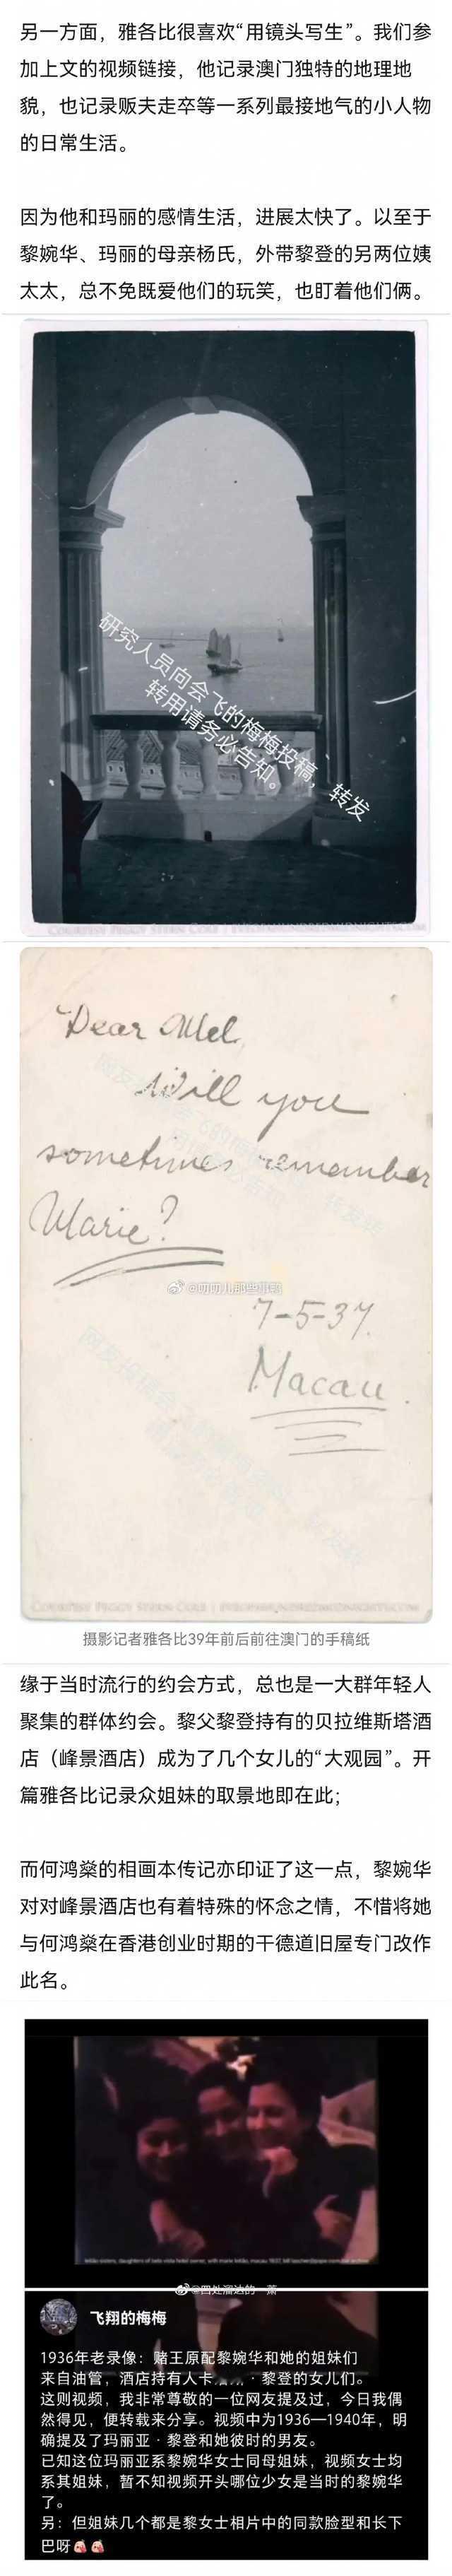 另一方面，雅各比很喜欢“用镜头写生”。我们参
加上文的视频链接，他记录澳门独特的地理地
貌，也记录贩夫走卒等一系列最接地气的小人物
的日常生活。
因为他和玛丽的感情生活，进展太快了。以至于
黎婉华、玛丽的母亲杨氏，外带黎登的另两位姨
太太，总不免既爱他们的玩笑，也盯着他们俩。
研究人员向会飞的梅梅投稿，转发
转用请务必告知。
COURTESY PEGGY STERN COLE | EVEOFAHUNDREDMIDNIGHTS.COM
Dear Mel,
Will you
sometimes remember
Marie?
7-5-37.
Macau.
COURTESY PEGGY STERN COLE | EVEOFAHUNDREDMIDNIGHTS.COM
摄影记者雅各比39年前后前往澳门的手稿纸
缘于当时流行的约会方式，总也是一大群年轻人
聚集的群体约会。黎父黎登持有的贝拉维斯塔酒
店（峰景酒店）成为了几个女儿的“大观园”。开
篇雅各比记录众姐妹的取景地即在此；
而何鸿燊的相画本传记亦印证了这一点，黎婉华
对对峰景酒店也有着特殊的怀念之情，不惜将她
与何鸿燊在香港创业时期的干德道旧屋专门改作
此名。
飞翔的梅梅
1936年老录像：赌王原配黎婉华和她的姐妹们
来自油管，酒店持有人卡 · 黎登的女儿们。
这则视频，我非常尊敬的一位网友提及过，今日我偶
然得见，便转载来分享。视频中为1936—1940年，明
确提及了玛丽亚 · 黎登和她彼时的男友。
已知这位玛丽亚系黎婉华女士同母姐妹，视频女士均
系其姐妹，暂不知视频开头哪位少女是当时的黎婉华
了。
另：但姐妹几个都是黎女士相片中的同款脸型和长下
巴呀